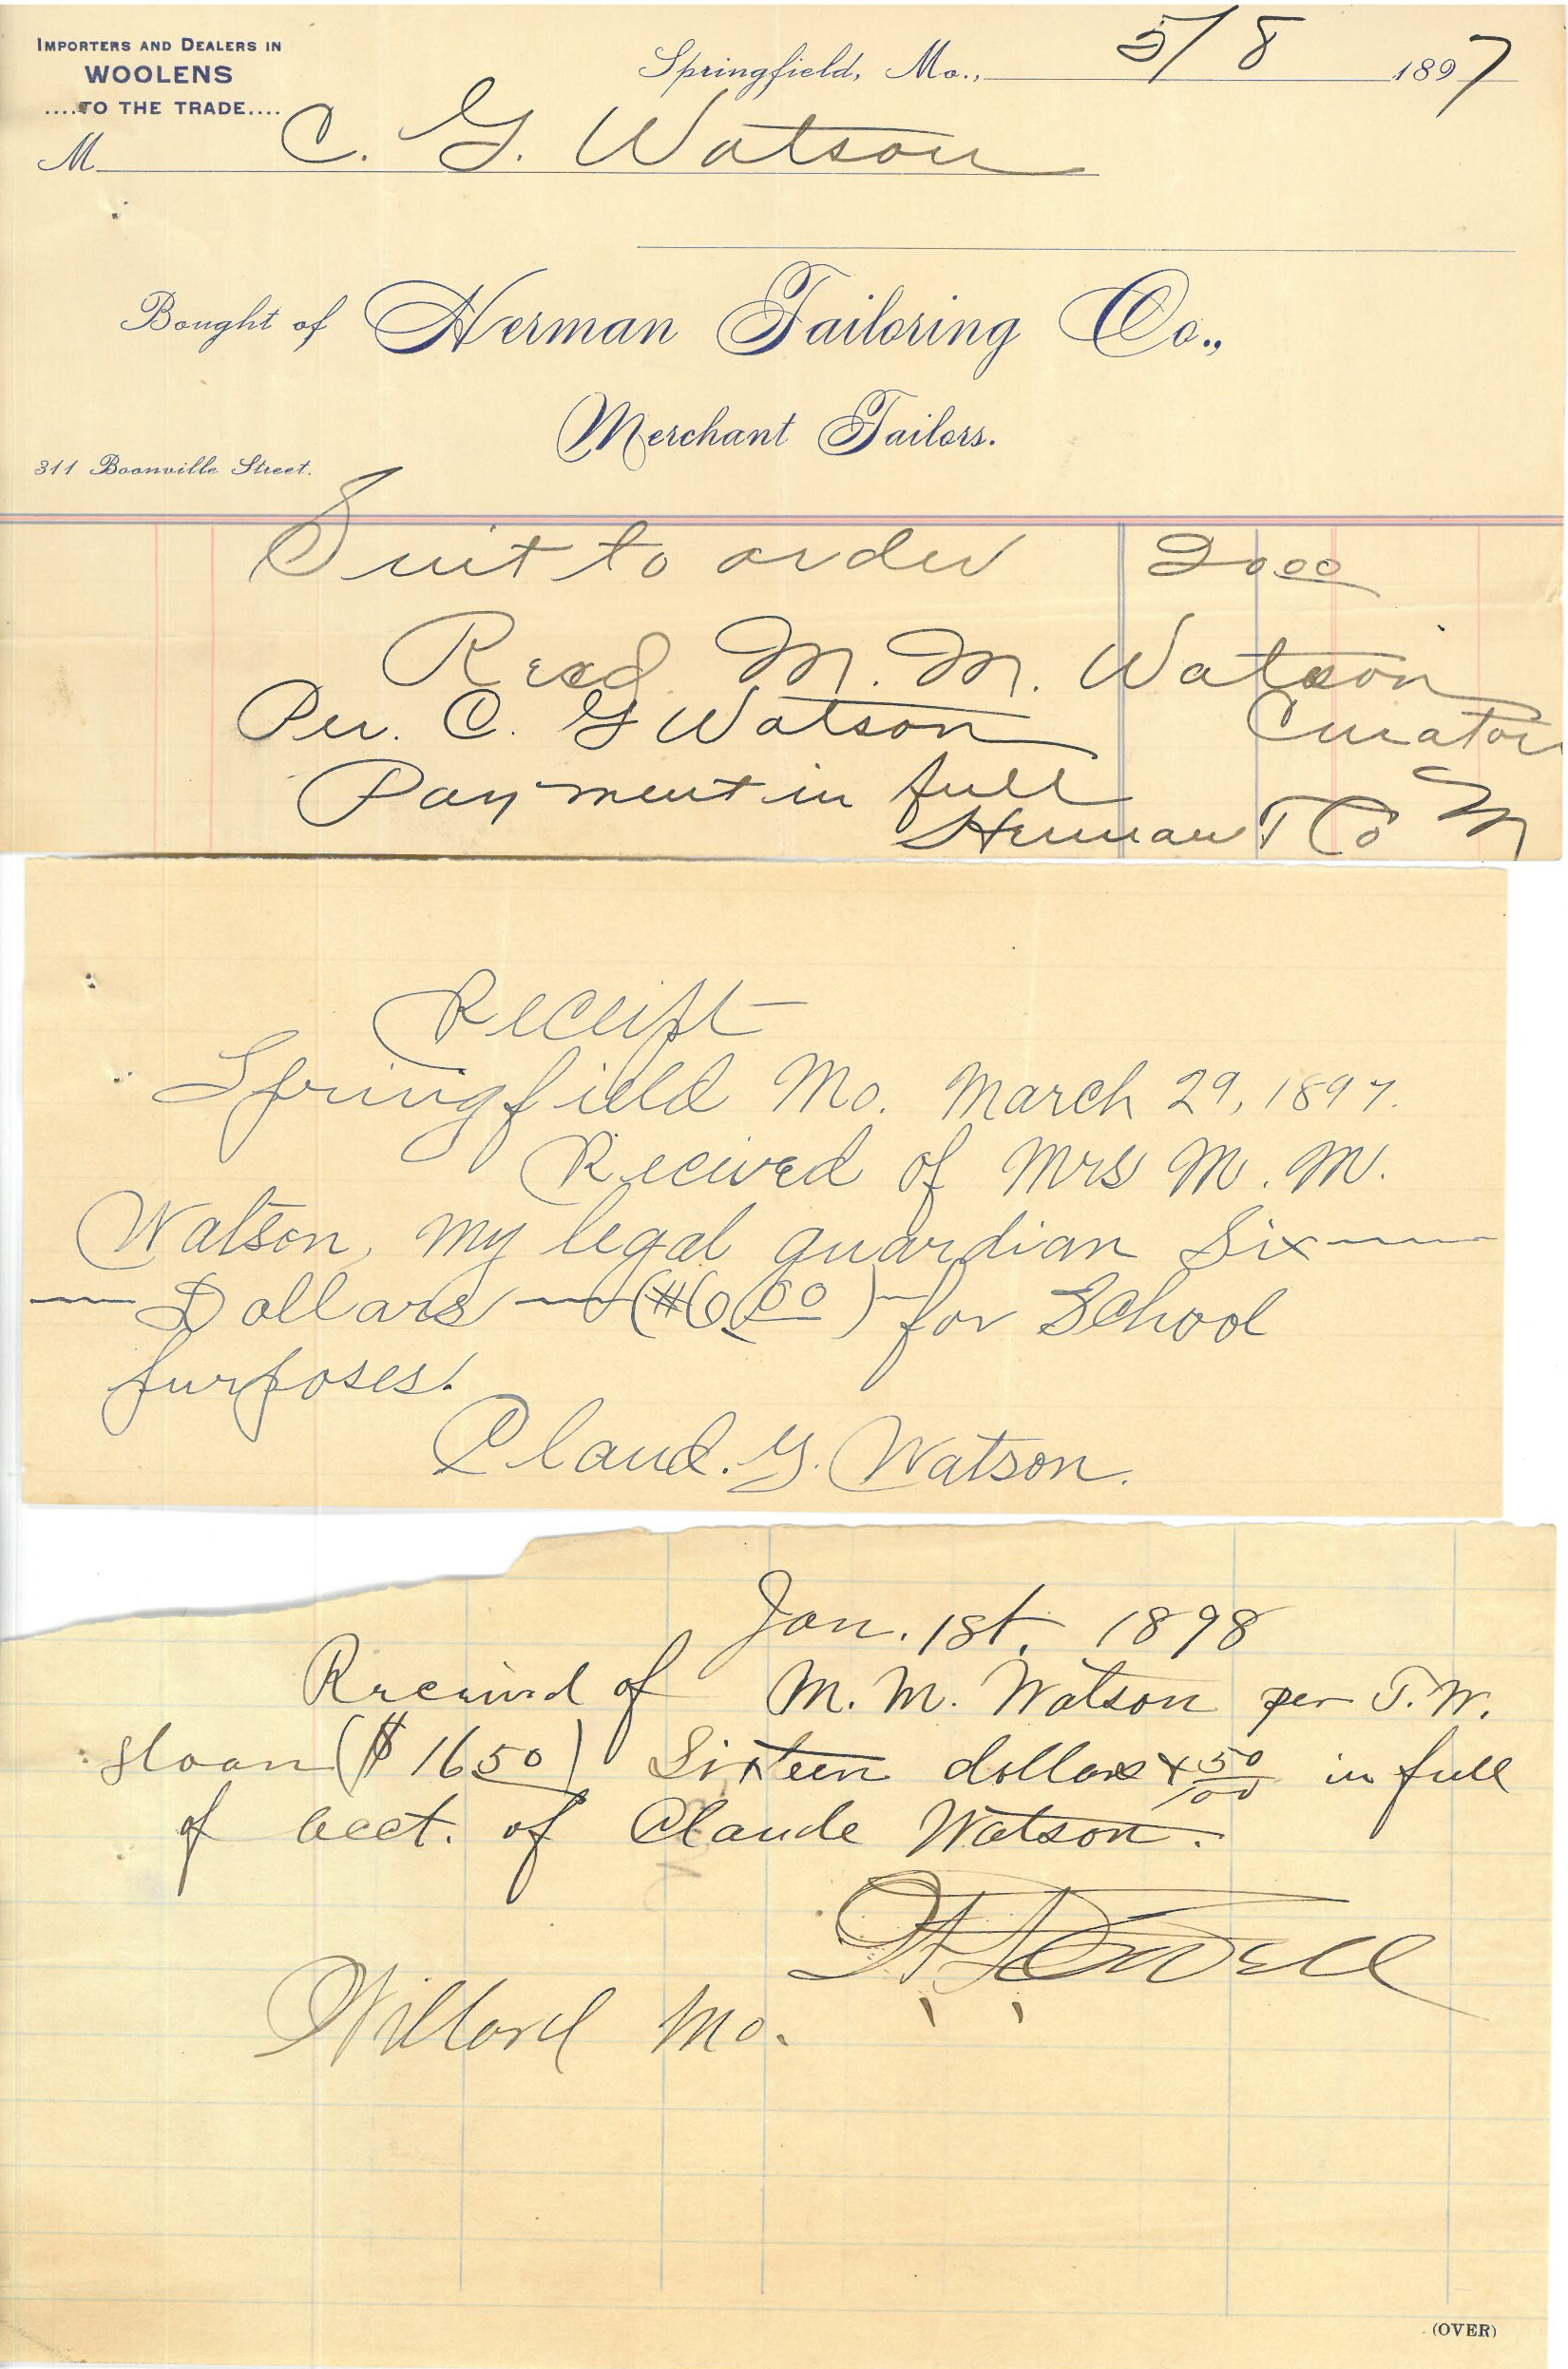 IMPORTERS AND DEALERS IN
WOOLENS
....TO THE TRADE....
Springfield, Mo., 5/8 1897
M C. G. Watson
Bought of Herman Tailoring Co.,
Merchant Tailors.
311 Boonville Street.
Suit to order 20 00
Recd. M. M. Watson
Per. C. G Watson Curator
Payment in full
Herman T Co
M
Receipt
Springfield Mo. March 29, 1897.
Recived of Mrs M. M.
Watson, my legal guardian Six
Dollars (#6.00) for School
purposes.
Claud. G. Watson.
Jan. 1st. 1898
Received of M. M. Watson per T. W.
Sloan ($ 16 50) Sixteen dollars & 50/100 in full
of acct. of Claude Watson.
Willard Mo.
(OVER)